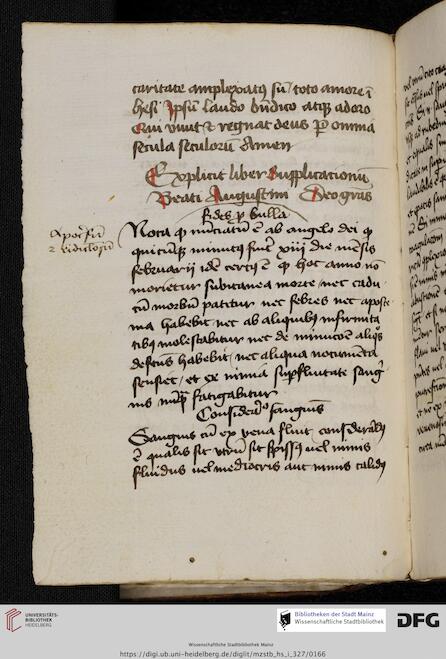 caritate amplexatus su͂ toto amore i
hesi Ipsu͂ laudo bn͂dico atqȝ adoro
Qui viuit ⁊ regnat deus p omnia
secula seculoru͂ Amen
Explicit liber supplicationu͂
Beati Augustini Deo gr͂as
fides p bulla
Apocrifu͂
⁊ ridiculosu͂
Nota ꝙ nu͂ciatu͂ e͂ ab angelo dei ꝙ
quicu͂qȝ minutus fue͂t xiiij die me͂sis
februarij ide͂ certus e͂ ꝙ hoc anno no͂
morietur subitanea morte / nec cadu
cu͂ morbu͂ patitur nec febres nec aposte
ma habebit nec ab aliquibus infirmita
tibus molestabitur nec de minucio͂e aliqȝ
defectus habebit / nec aliqua nocume͂ta
senciet / et ex nimia supfluitate sang͂
nis nu͂qȝ fatigabitur
Consideracio sanguinis
Sanguis cu͂ ex vena fluit considerandu͂
e͂ qualis sit vtru͂ sit spissus uel nimis
fluidus uel mediocris aut nimis calidus
UNIVERSITÄTS-
BIBLIOTHEK
HEIDELBERG
Bibliotheken der Stadt Mainz
Wissenschaftliche Stadtbibliothek
DFG
Wissenschaftliche Stadtbibliothek Mainz
https://digi.ub.uni-heidelberg.de/diglit/mzstb_hs_i_327/0166